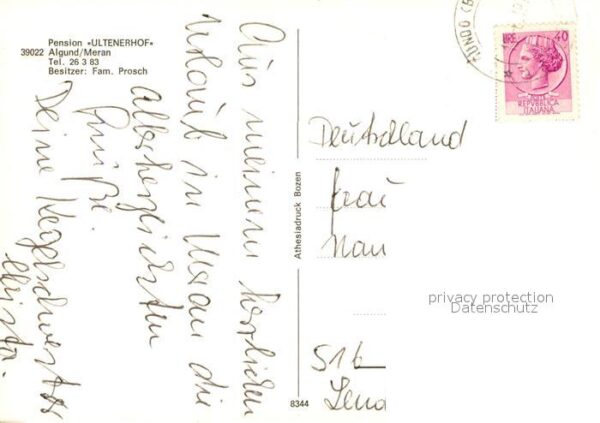 Pension «ULTENERHOF»
39022 Algund/Meran
Tel. 26 3 83
Besitzer: Fam. Prosch
Aus meinem herrlichen
Urlaub in Meran die
allerherzlichsten
Grüße.
Deine Kegelschwester
Christa.
Athesiadruck Bozen
8344
LIRE 40
REPVBBLICA
ITALIANA
Deutschland
Frau
privacy protection
Datenschutz
516